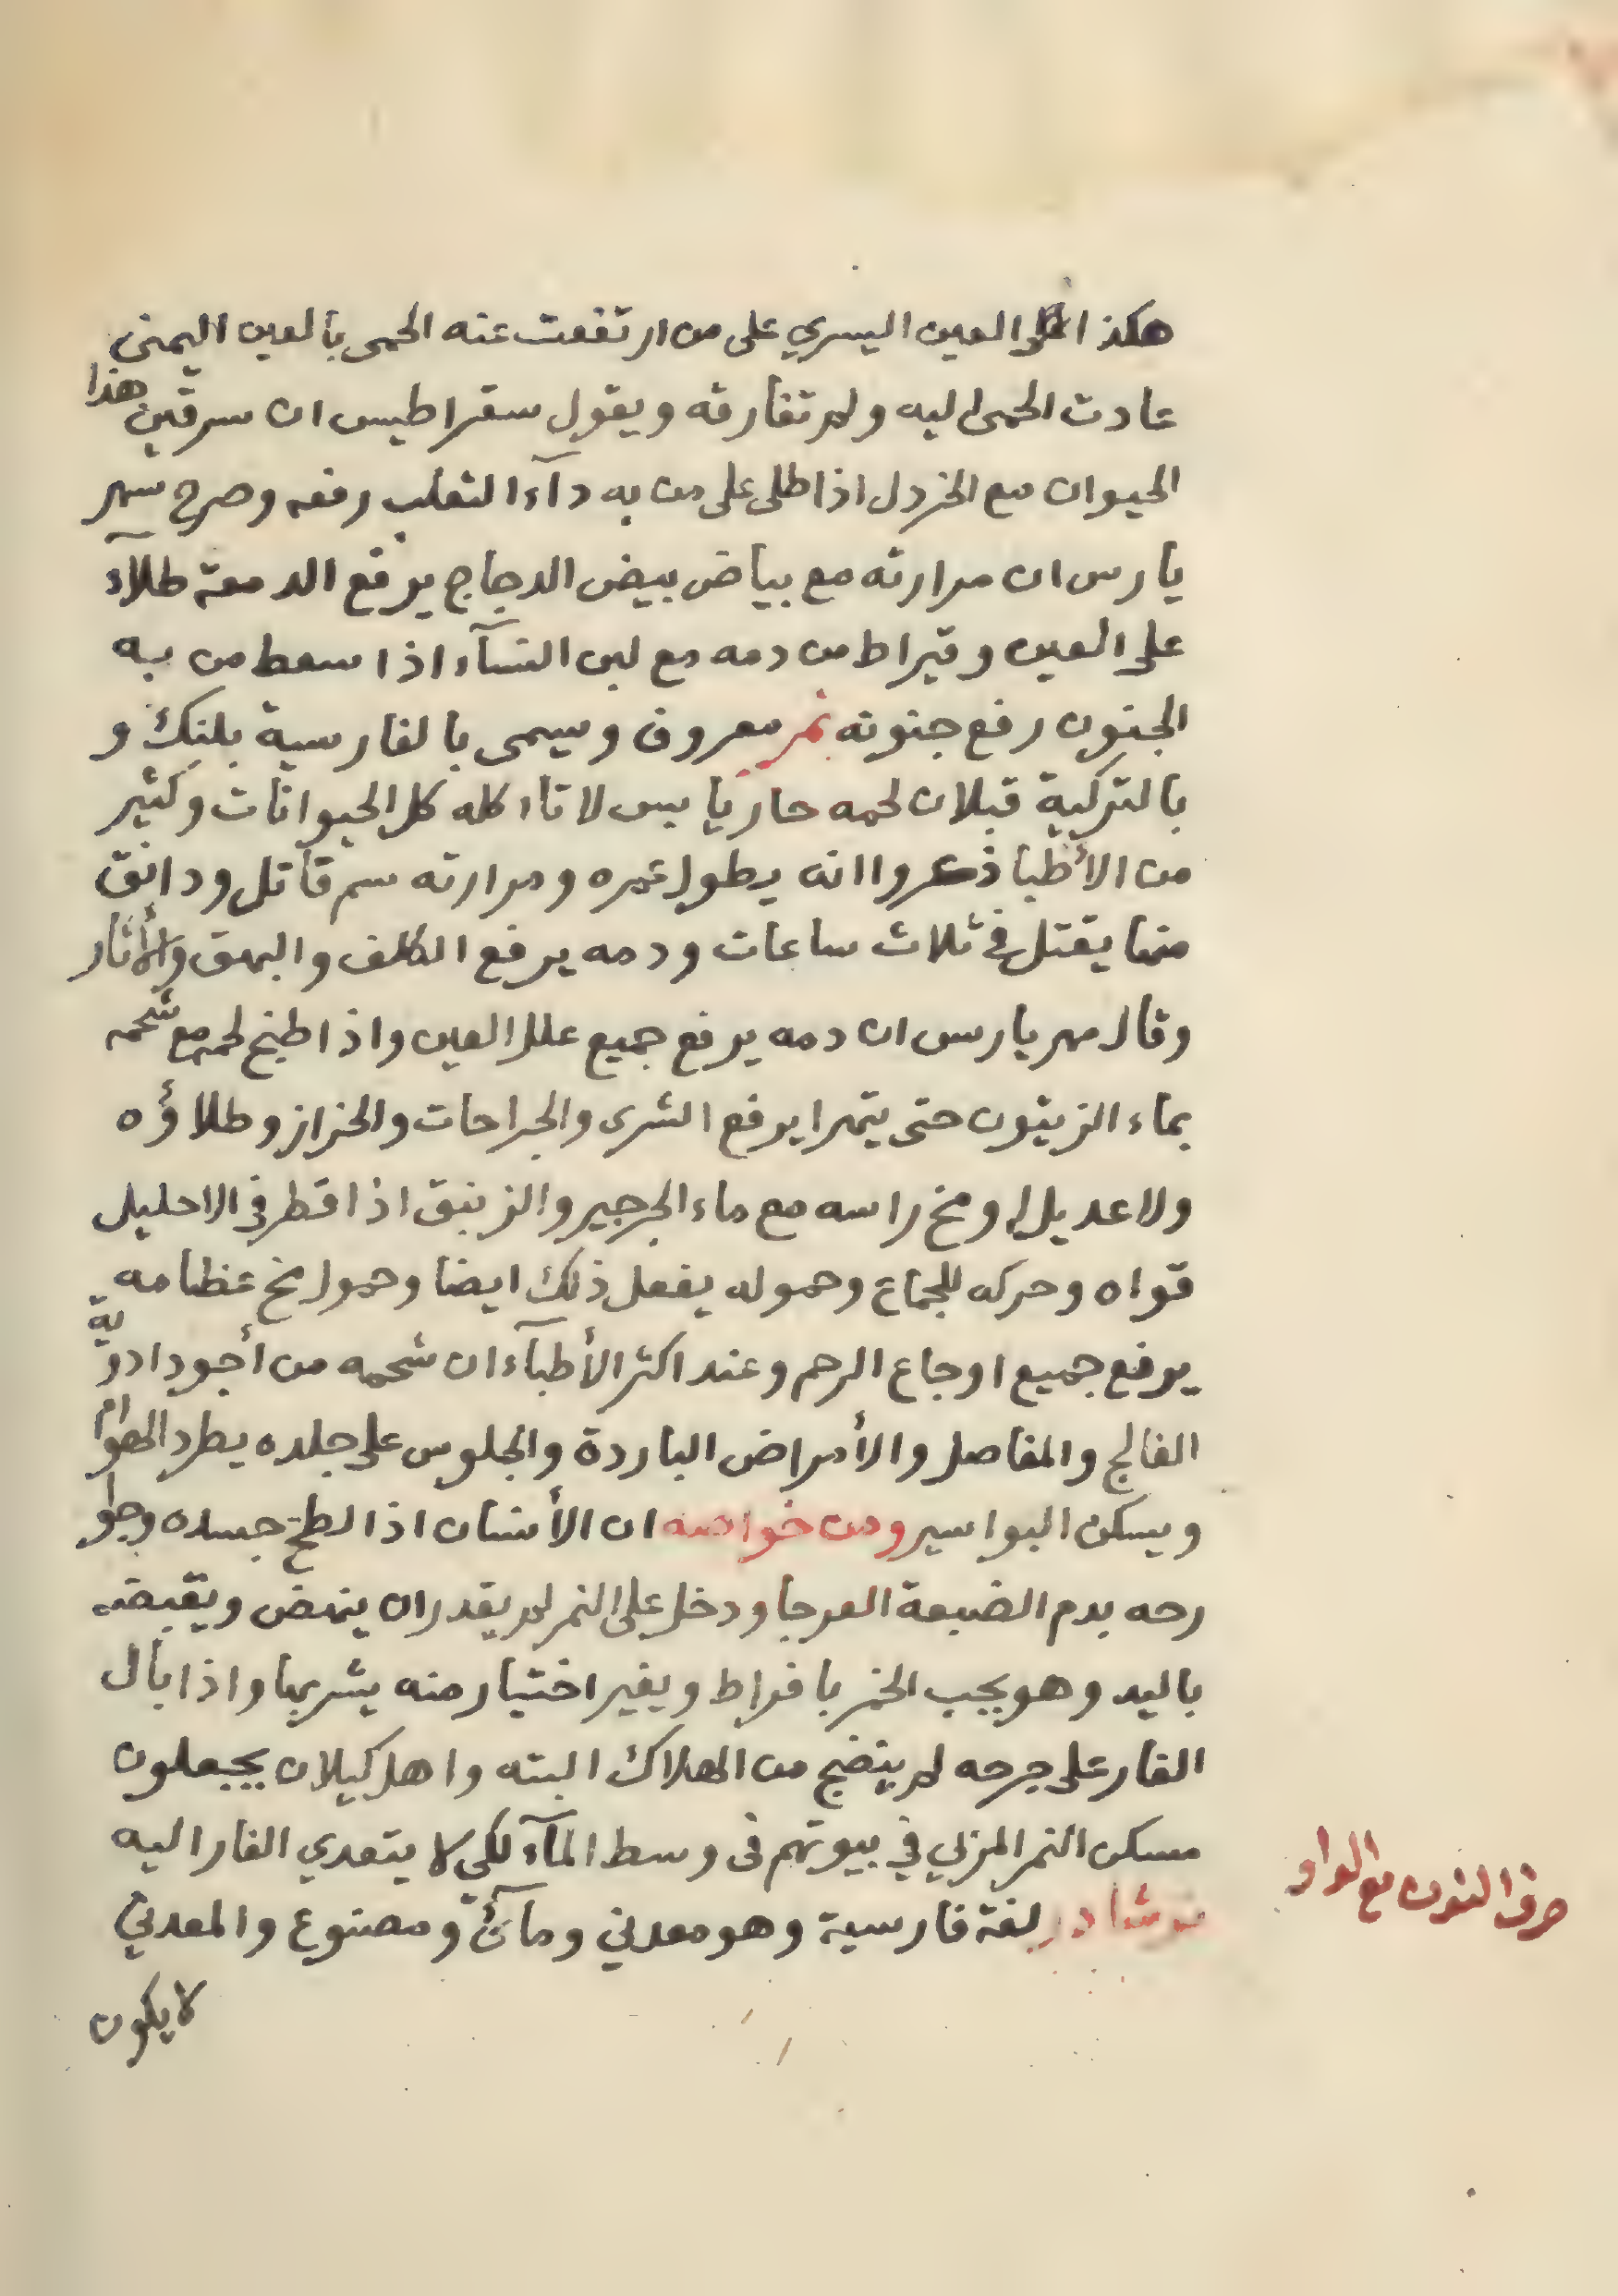 هكذا العين اليسري على من ارتفعت عنه الحمى بالعين اليمنى
عادت الحمى اليه ولم تفارقه ويقول سقراطيس ان سرقين هذا
الحيوان مع الخردل اذا طلى على من به دآء الثعلب رفعه وصرح مهر
يارس ان مرارته مع بياض بيض الدجاج يرفع الدمعة طلآء
على العين وقيراط من دمه مع لبن النسآء اذا سعط من به
الجنون رفع جنونه نمر معروف ويسمى بالفارسية بلنك و
بالتركية قبلان لحمه حار يابس لا تاء كله كل الحيوانات وكثير
من الأطبا ذكروا انه يطول عمره ومرارته سم قاتل ودانق
منها يقتل في ثلاث ساعات ودمه يرفع الكلف والبهق والأثار
وقال مهريارس ان دمه يرفع جميع علل العين واذا طبخ لحمه مع شحمه
بماء الزيتون حتى يتهرا يرفع الشرى والجراحات والخزاز وطلاؤه
ولا عديل له ومخ راسه مع ماء الجرجير والزنبق اذا قطر فى الاحليل
قواه وحركه للجماع وحموله يفعل ذلك ايضا وحمول مخ عظامه
يرفع جميع اوجاع الرحم وعند اكثر الأطبآء ان شحمه من أجود ادوية
الفالج والمفاصل والأمراض الباردة والجلوس على جلده يطرد الهوام
ويسكن البواسير ومن خواصه ان الأنسان اذا لطخ جسده وجوا
رحه بدم الضبعة العرجا ودخل على النمر لم يقدر ان ينهض ويقبضه
باليد وهو يحب الخمر بافراط وبغير اختيار منه يشربها واذا بال
الفار على جرحه لم ينضج من الهلاك البته واهل كيلان يجعلون
مسكن النمر المزلي في بيوتهم فى وسط المآء لكي لا يتعدي الفار اليه
حرف النون مع الواو
نوشادر لغة فارسية وهو معدني ومآئي ومصنوع والمعدني
لا يكون